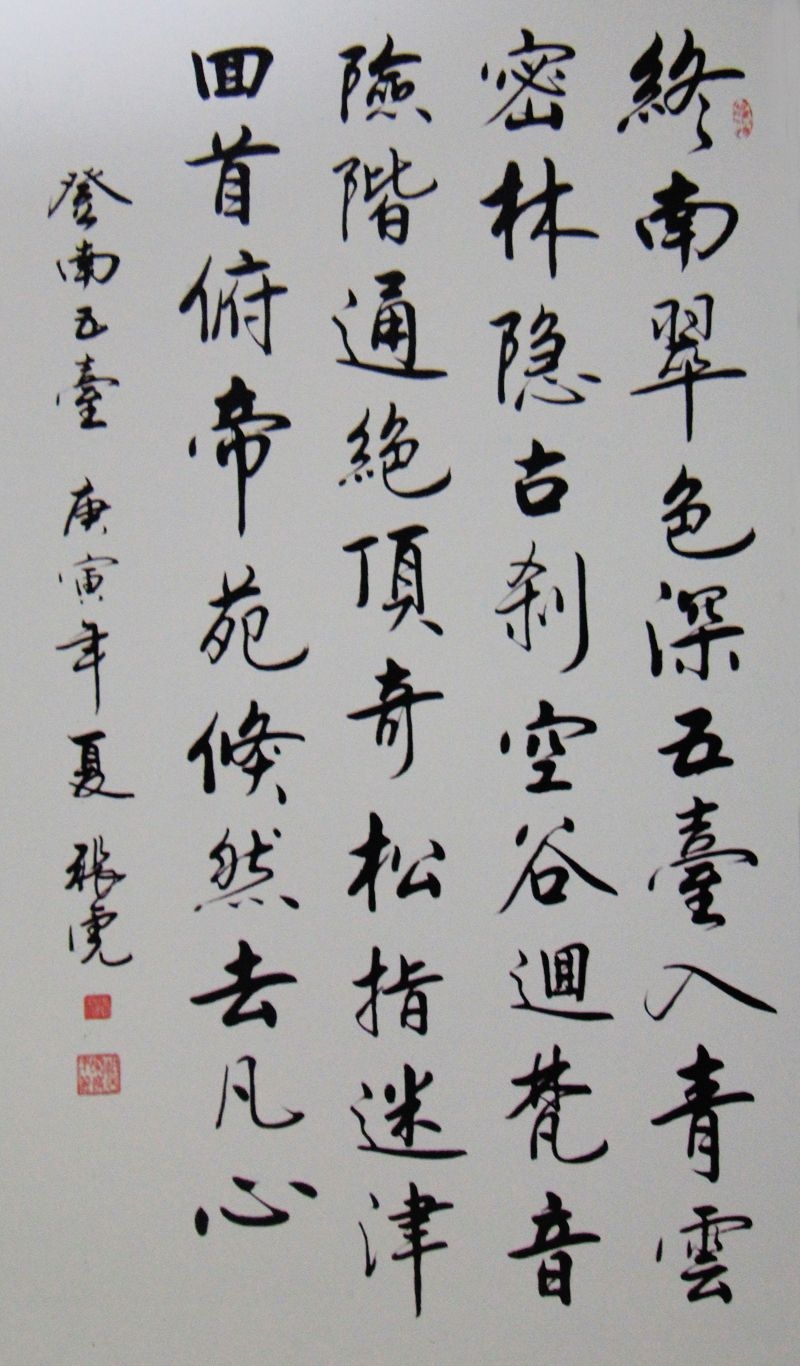 終南翠色深五臺入青雲
密林隐古刹空谷迴梵音
險階通絕頂奇松指迷津
回首俯帝苑倏然去凡心
登南五臺 庚寅年夏 張虎